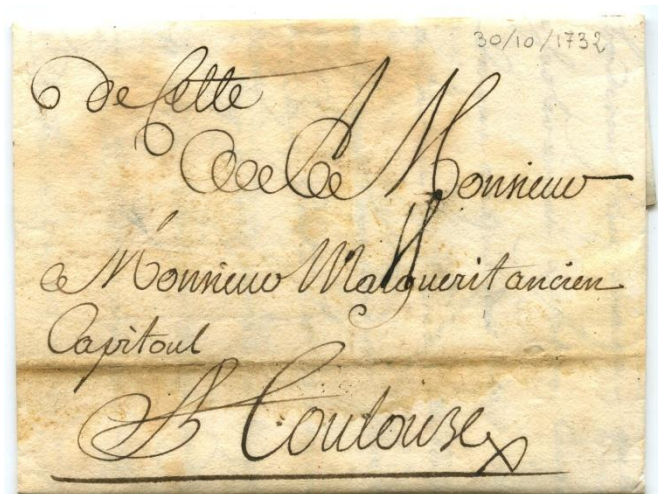 30/10/1732
de Cette
Monsieur
a Monsieur Marguerit ancien
Capitoul
A Toulouse